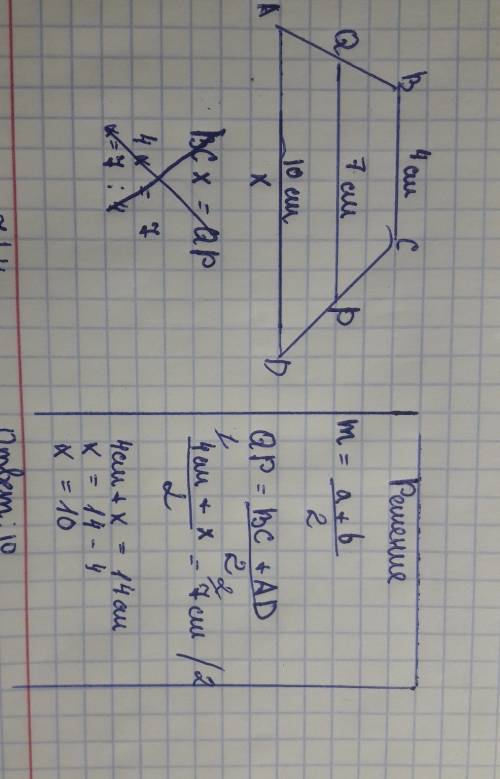 A
Q
B
4 см
C
7 см
P
10 см
x
D
BC x = QP
4 x = 7
x = 7 : 4
Решение
m = a + b / 2
QP = BC + AD / 2
4 см + x / 2 = 7 см /2
4 см + x = 14 см
x = 14 - 4
x = 10
Ответ: 10